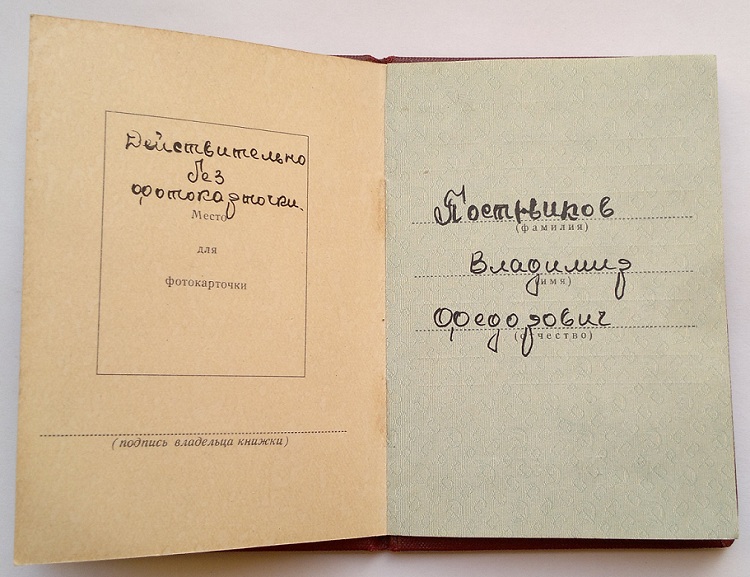 Действительно
без
фотокарточки.
Место
для
фотокарточки
(подпись владельца книжки)
Постников
(фамилия)
Владимир
(имя)
Федорович
(отчество)